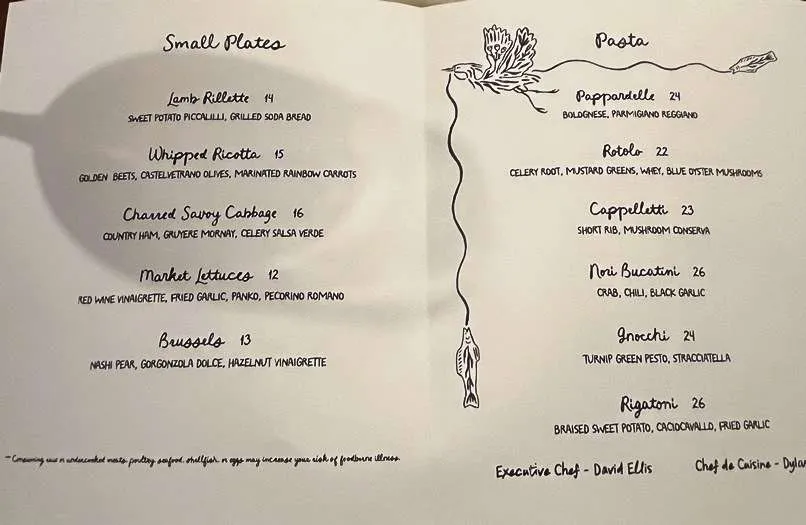 Small Plates
Lamb Rillette 14
SWEET POTATO PICCALILLI, GRILLED SODA BREAD
Whipped Ricotta 15
GOLDEN BEETS, CASTELVETRANO OLIVES, MARINATED RAINBOW CARROTS
Charred Savoy Cabbage 16
COUNTRY HAM, GRUYERE MORNAY, CELERY SALSA VERDE
Market Lettuces 12
RED WINE VINAIGRETTE, FRIED GARLIC, PANKO, PECORINO ROMANO
Brussels 13
NASHI PEAR, GORGONZOLA DOLCE, HAZELNUT VINAIGRETTE
Consuming raw or undercooked meats, poultry, seafood, shellfish, or eggs may increase your risk of foodborne illness.
Pasta
Pappardelle 24
BOLOGNESE, PARMIGIANO REGGIANO
Rotolo 22
CELERY ROOT, MUSTARD GREENS, WHEY, BLUE OYSTER MUSHROOMS
Cappelletti 23
SHORT RIB, MUSHROOM CONSERVA
Nori Bucatini 26
CRAB, CHILI, BLACK GARLIC
Gnocchi 24
TURNIP GREEN PESTO, STRACCIATELLA
Rigatoni 26
BRAISED SWEET POTATO, CACIOCAVALLO, FRIED GARLIC
Executive Chef - David Ellis Chef de Cuisine - Dylan